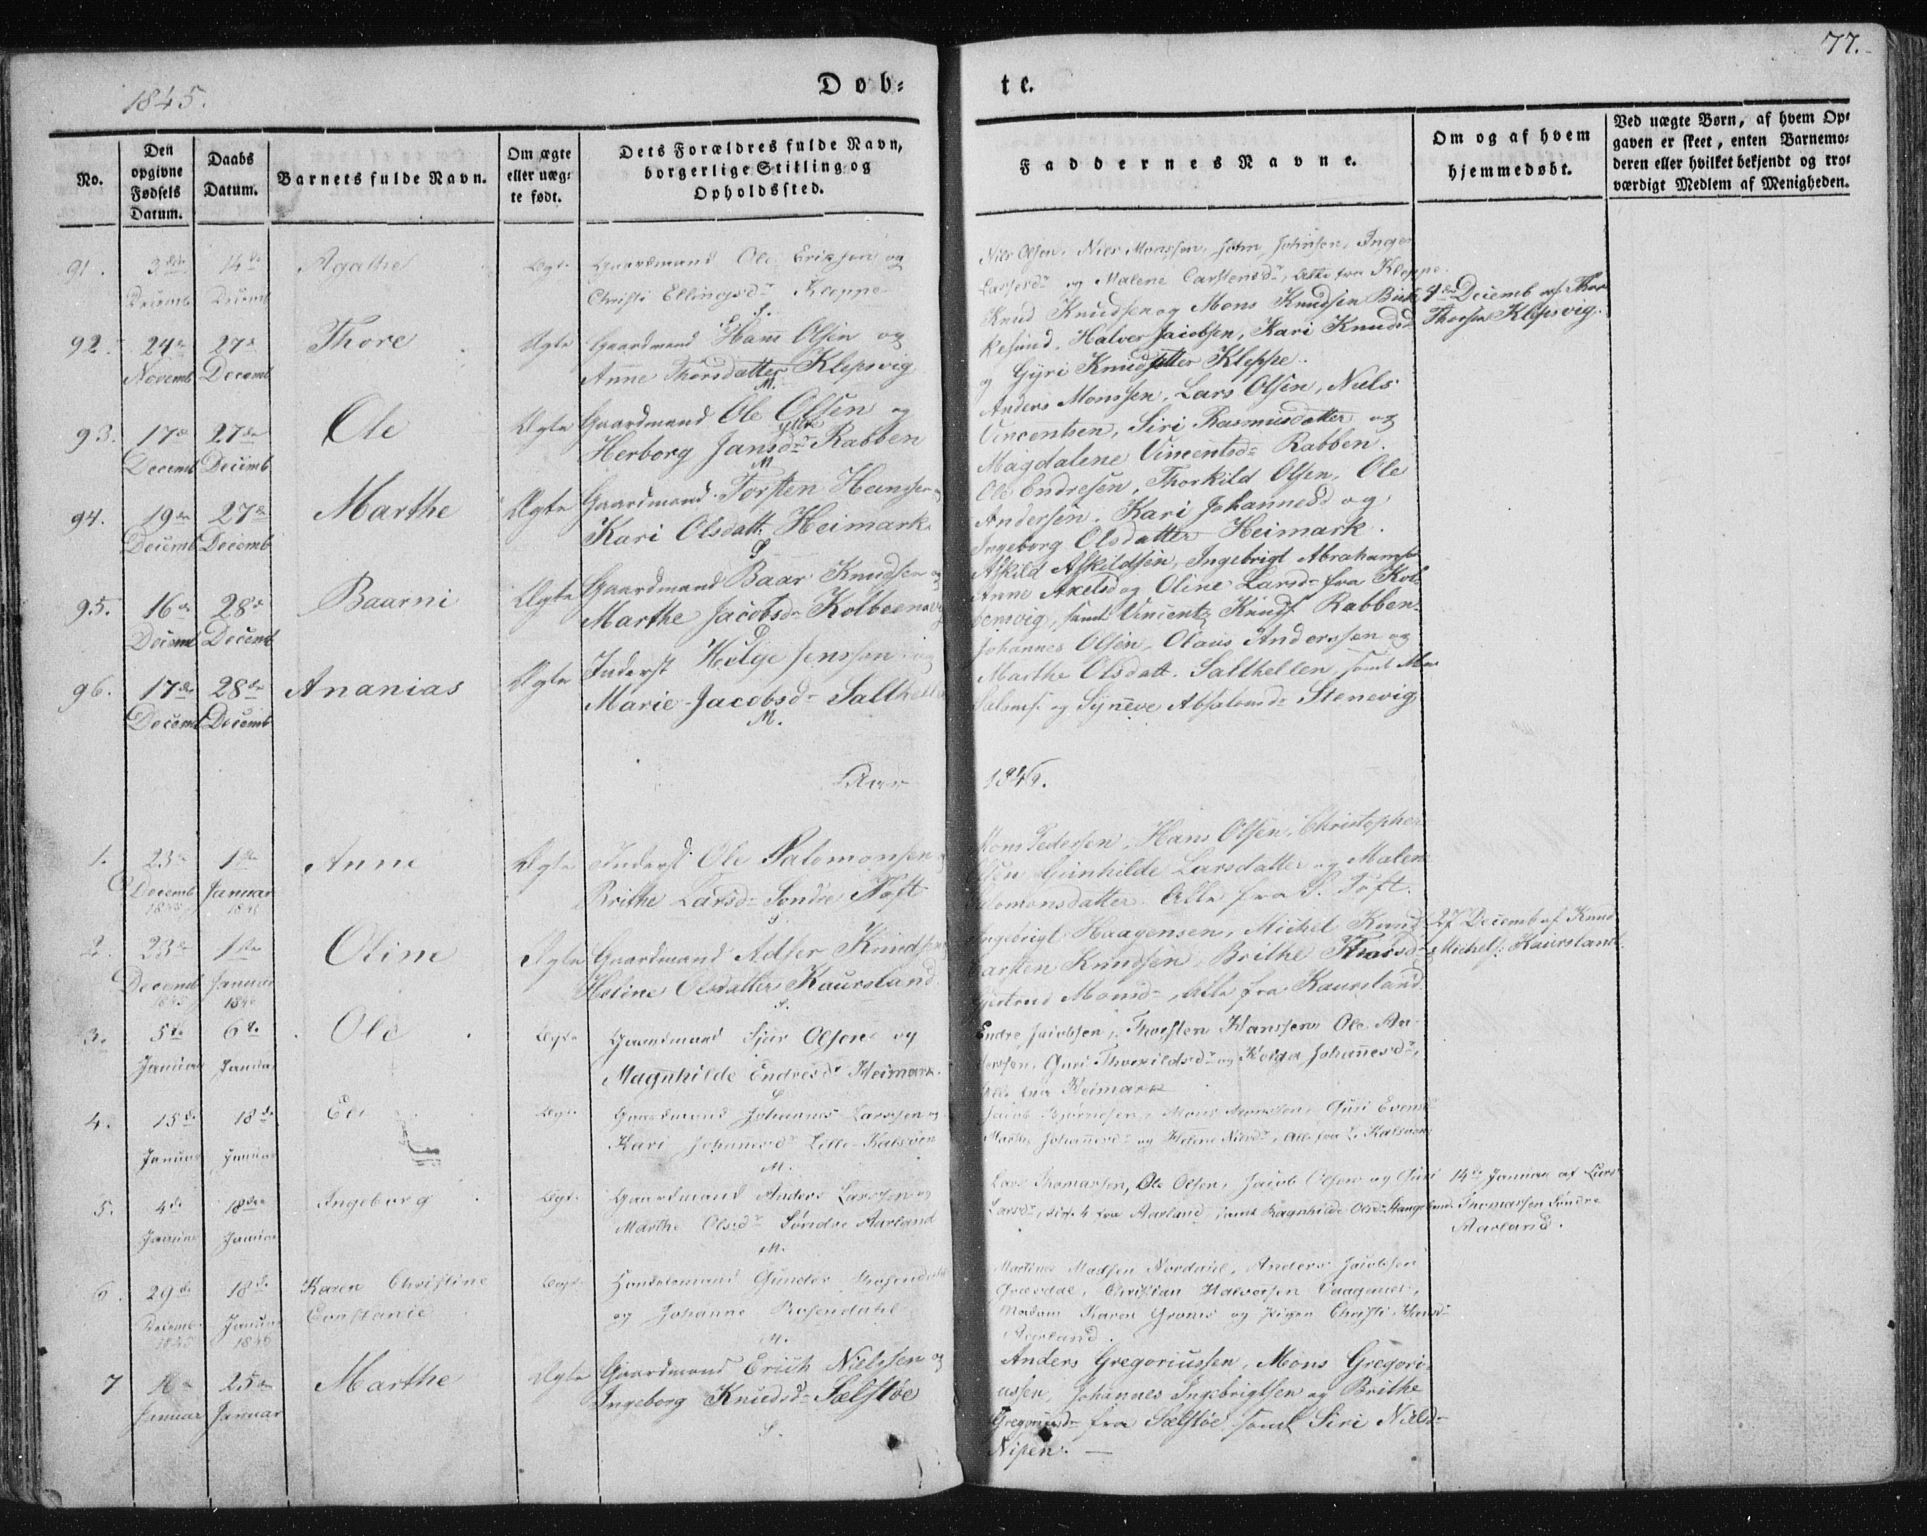 77.
1845.
Døb-
te.
No.
Den opgivne Fødsels Datum.
Daabs Datum.
Barnets fulde Navn.
Om ægte eller uæg- te født.
Dets Forældres fulde Navn, borgerlige Stilling og Opholdssted.
Faddernes Navne.
Om og af hvem hjemmedøbt.
Ved uægte Børn, af hvem Op- gaven er skeet, enten Barnemo- deren eller hvilket bekjendt og tro- værdigt Medlem af Menigheden.
91. 3die Decemb 14de Decemb Agathe Ægte Gaardmand Ole Erikssen og
Christi Ellingsdr Kleppe
S.
Niels Olsen, Niels Monssen, John Johnsen, Inger
Larsesdr og Malene Carstensdr, Alle fra Kleppe.
92. 24de Novemb 27de Decemb Thore Ægte Gaardmand Hans Olsen og
Anne Thorsdatter Klepsvig
M.
Knud Knudsen og Mons Knudsen Birke
kesund, Halvor Jacobsen, Kari Knudsd
og Gyri Knudsdatter Kleppe.
4de Decemb af Thor
Thorsen Klepsvig.
93. 17de Decemb 27de Decemb Ole Ægte Gaardmand Ole Olsen og
Herborg Jansdr Rabben
M
Anders Monssen, Lars Olsen, Niels
Vincentsen, Siri Rasmusdatter og
Magdalene Vincentsdr Rabben.
94. 19de Decemb 27de Decemb Marthe Ægte Gaardmand Torsten Hanssen og
Kari Olsdatt. Heimark.
S
Ole Endresen, Thorkild Olsen, Ole
Andersen, Kari Johannesd og
Ingeborg Olsdatter Heimark.
95. 16de Decemb 28de Decemb Baarni Ægte Gaardmand Baar Knudsen og
Marthe Jacobsdr Kolbeensvig
S
Askild Askildsen, Ingebrigt Abrahams
Anne Axelsd og Oline Larsdr fra Kol-
beensvig, samt Vincentz Knuds. Rabben.
96. 17de Decemb 28de Decemb Ananias Ægte Inderst Helge Jenssen og
Marie Jacobsdr Salthella
M.
Johannes Olsen, Olaus Anderssen og
Marthe Olsdatt. Salthellen, samt
Salems. og Synneve Absalonsdr Stenevig
Aar
1846.
1. 23de Decemb 1845 1ste Januar 1846 Anne Ægte Inderst Ole Salomonsen og
Brithe Larsdr Søndre Toft
S.
Mons Pedersen, Hans Olsen, Christopher
Olsen Gunhilde Larsdatter og Malene
Salomonsdatter. Alle fra S. Toft.
2. 23de Decemb 1845 1ste Januar 1846 Oline Ægte Gaardmand Adser Knudsen
Helene Olsdatter Kaursland.
S.
Ingebrigt Haagensen, Michel Knud
Carsten Knudsen, Brithe Thoresdr
Gjertrud Monsdr, Alle fra Kaursland
27 Decemb af Knud
Michels. Kaursland
3. 5te Januar 6te Januar Ole Ægte Gaardmand Sjur Olsen og
Magnhilde Endresdr Heimark.
S
Endre Jacobsen, Thorsten Hanssen, Ole An-
dersen, Guri Thorkildsdr og Helga Johannesdr,
Alle fra Heimark
4. 15de Januar 18de Januar Ægte Gaardmand Johannes Larssen og
Kari Johannesdr Lille-Kalsøen
M.
Jacob Bjørnesen, Mons Monssen, Guri Evensd
Marthe Johannesdr og Helene Nielsdr, Alle fra L. Kalsøen
5. 4de Januar 18den Januar Ingeborg Ægte Gaardmand Anders Larssen og
Marthe Olsdr Søndre Aarland
M.
Lars Thomassen, Ole Olsen, Jacob Olsen og Guri
Larsdr, disse 4 fra Aarland, samt Ragnhilde Olsdr Stangeland
14de Januar af Lars
Thomassen Søndre
Aarland.
6. 29de Decemb. 1845 18de Januar 1846 Karen Christine
Constanse Ægte Handelsmand Gunder Rosendahl
og Johanne Rosendahl
M.
Martines Madsen Nordahl, Anders Jacobsen
Græsdal, Christian Halvorsen Vaagenes,
Madam Karen Grones og Pigen Christi Hansdr
Aarland.
7 16de Januar 25de Januar Marthe Ægte Gaardmand Erich Nielssen og
Ingeborg Knudsdr Selstøe
S.
Anders Gregoriussen, Mons Gregori-
ussen, Johannes Ingebrigtsen og Brithe
Gregoriusdr fra Selstøe samt Siri Nielsdr
Nipen. —